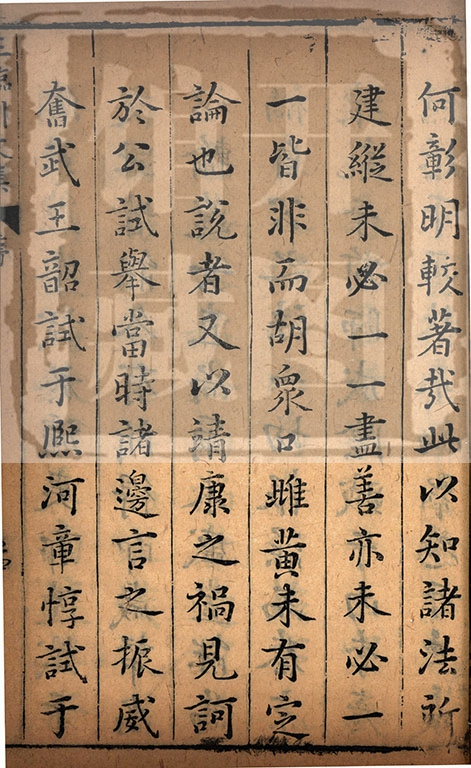 何彰明較著哉此以知諸法所
建縱未必一一盡善亦未必一
一皆非而胡眾口雌黃未有定
論也說者又以靖康之禍見訶
於公試舉當時諸邊言之振威
奮武王韶試于熈河章惇試于